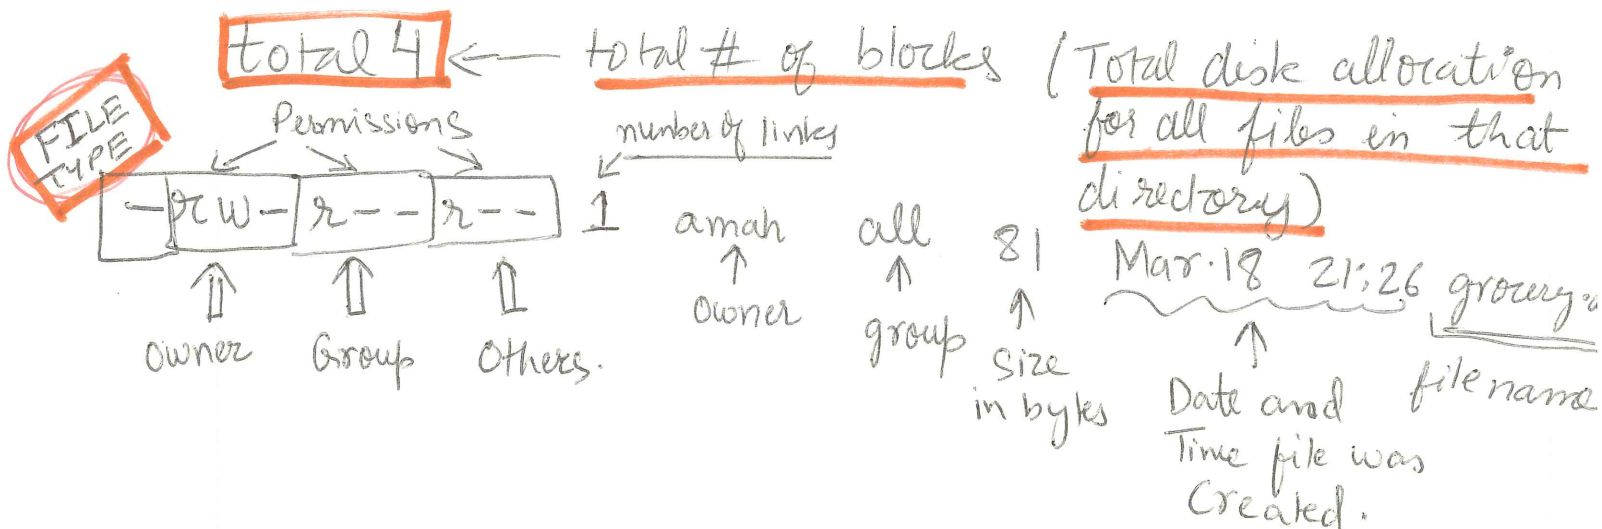 total 4 ← total # of blocks (Total disk allocation
for all files in that
directory)
FILE
TYPE
Permissions
number of links
- rw- r-- r-- 1 amah all 81 Mar.18 21:26 grocery.
owner Group Others.
owner
group
size
in bytes
Date and
Time file was
Created.
filename